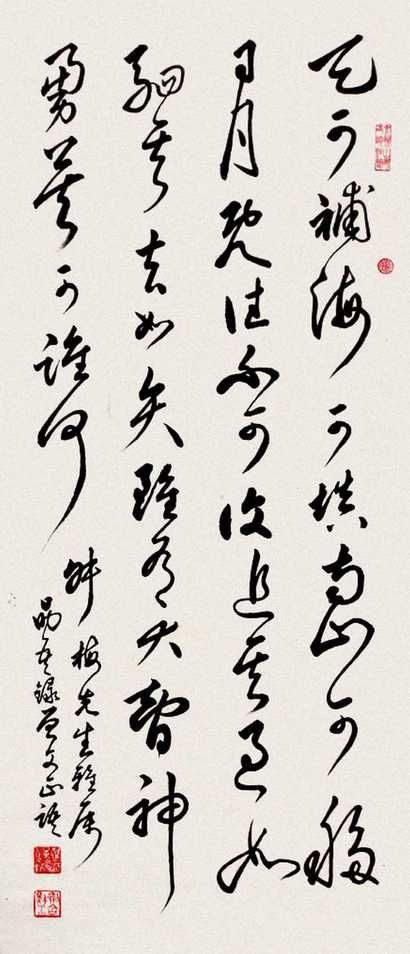 天可補海可填南山可移
日月既往不可復追其過如
駟其去如矢雖有大智神
勇莫可誰何
梅先生雅属
錄曾文正語